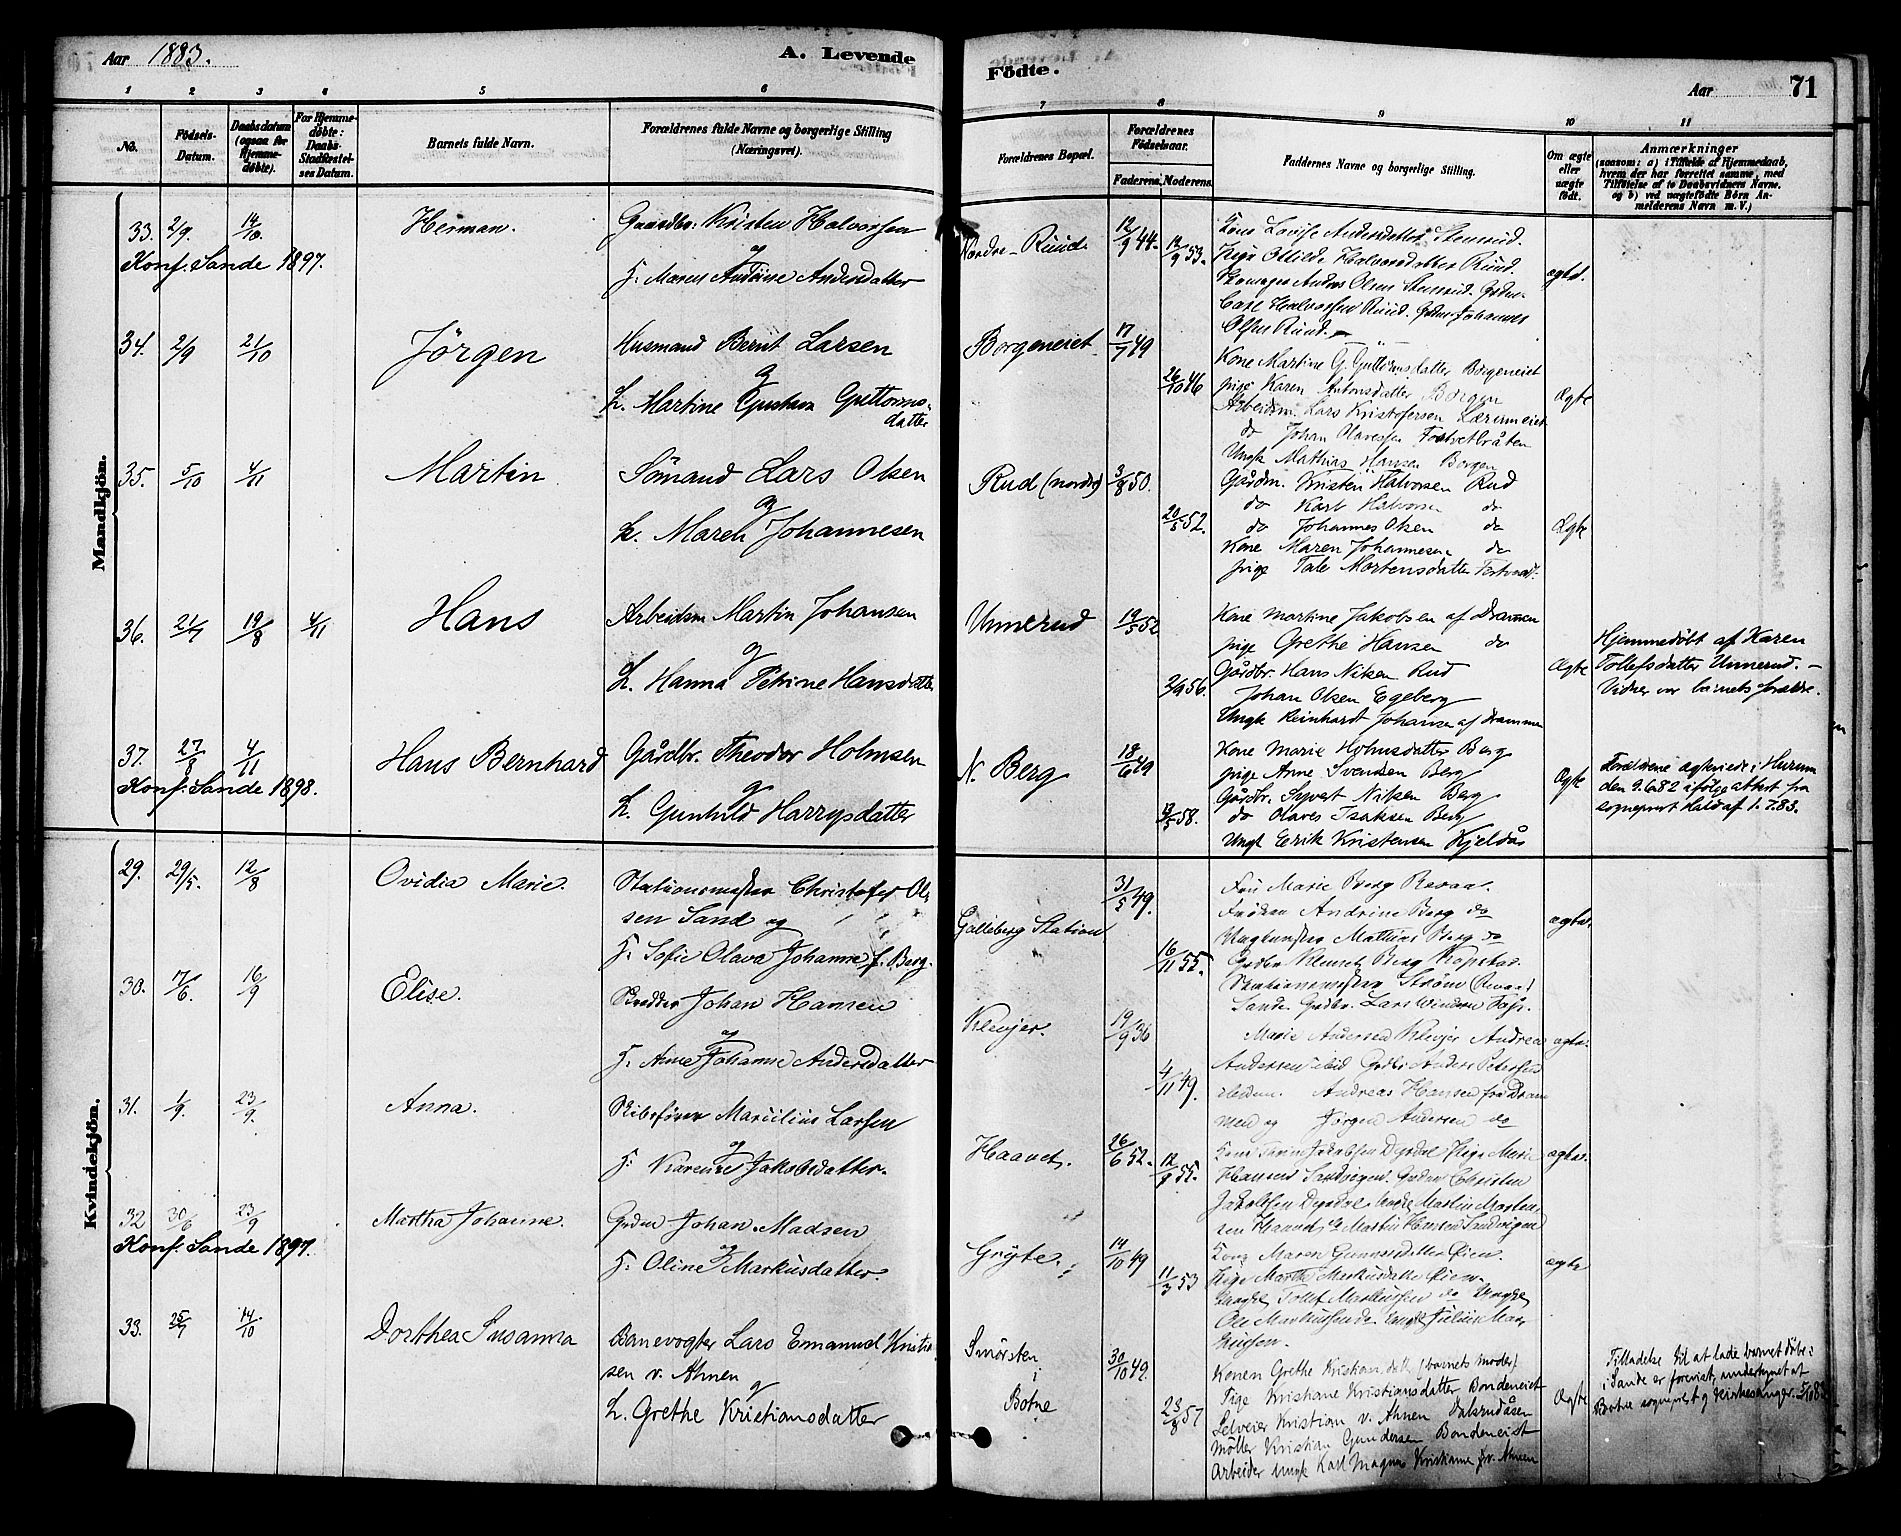 Aar 1883.
A. Levende
Födte.
Aar
71
1 2 3 4 5 6
7 8 9 10 11
No.
Födsels-Datum.
Daabsdatum (ogsaa for Hjemme-døbte).
For Hjemme-døbte: Daabs-Stadfæstel-ses Datum.
Barnets fulde Navn.
Forældrenes fulde Navne og borgerlige Stilling (Næringsvei).
Forældrenes Bopæl.
Forældrenes Födselsaar.
Faderens. Moderens.
Faddernes Navne og borgerlige Stilling.
Om ægte eller uægte født.
Anmærkninger
(saasom: a) i Tilfælde af Hjemmedaab, hvem der har forrettet samme, med Tilføielse af to Daabsvidners Navne, og b) ved uægtefödte Börn Anmelderens Navn m. V.)
Mandkjön.
33. 2/9. 14/10 Herman. Gaardbr. Kristen Halvorsen
og
H. Maren Andrine Andersdatter
Konf. Sande 1897.
Nordre-Ruud 12/9 44. 12/9 53.
Kone Lovise Andersdatter Stensrud.
Pige Otilde Halvorsdatter Ruud.
Andreas Olsen Stensrud. Grdbr.
Carl Halvorsen Ruud. Grdbr. Johannes
Olsen Ruud.
ægte.
34. 2/9 21/10 Jörgen Husmand Bernt Larsen
og
H. Martine Gustava Guttorms-
datter
Borgeneiet 17/7 49 26/10 46
Kone Martine G. Guttormsdatter Borgeneiet
pige Karen Antonsdatter Borgen
Arbeidsm. Lars Kristofersen Lærumeiet
do Johan Olavessen Tostvetbråten
Ungk. Mathias Hansen Borgen
Ægte
35. 5/10 4/11 Martin Sömand Lars Olsen
og
H. Maren Johannesen
Rud (nordre) 3/8 50. 20/5 52.
Gårdm. Kristen Halvorsen Rud
do Karl Halvorsen do
do Johannes Olsen do
Kone Maren Johannesen do
pige Tale Mortensdatter
Ægte
36. 21/7 19/8 4/11 Hans Arbeidsm Martin Johansen
og
H. Hanna Petrine Hansdatter
Unnerud 19/5 52 2/9 56.
Kone Martine Jakobsen af Drammen
pige Grethe Hansen do
Gårdbr. Hans Nilsen Rud
Johan Olsen Egeberg
Ungk Reinhardt Johansen af Drammen
Ægte
Hjemmedöbt af Karen
Tollefsdatter Unnerud. –
Vidner var barnets forældre.
37. 27/8 4/11 Hans Bernhard Gårdbr. Theodor Holmsen
og
H. Gunhild Harrysdatter
Konf. Sande 1898.
N. Berg 18/6 49 13/5 58.
Kone Marie Holmsdatter Berg
pige Anne Svendsen Berg
Gårdbr. Syvert Nilsen Berg
do Olaves Isaksen Berg
Ungk Erik Kristensen Kjeldås
Ægte
Forældrene ægteviede i Hurum
den 9.6.82 ifölge attest fra
sogneprest Hald af 1.7.83.
Kvindekjön.
29. 29/5. 12/8 Ovidia Marie. Stationsmester Christofer Ol-
sen Sand og
H. Sofie Olava Johanne f. Berg.
Galleberg Station 31/5 49. 16/11 55.
Fru Marie Berg Revaa.
Frøken Andrine Berg do
Mathias Berg do
Grdbr Klemet Berg Kopstad.
Stationsmester Strøm
Sande. Grdbr. Lars
ægte.
30. 17/6. 16/9 Elise. Skrædder Johan Hansen
og
H. Anne Johanne Andersdatter
Klevjer. 19/9 36 4/11 49.
Marie Andersen Klevjer Andrea
Andersen ibid Grdbr Anders Petersen
ibidem. Andreas Hansen fra Dram
men og Jørgen Andersen do
ægte.
31. 1/9. 23/9. Anna. Skibsfører Marcilius Larsen
og
H. Karense Jakobsdatter.
Haanet. 26/6 52. 12/9 55.
Jakobsen Dyrdal Pige Marie
Hansen Sandvigen. Grdbr Christen
Jakobsen Dyrdal Ungk Martin Morten
sen Haanet, & Martin Hansen Sandvigen
ægte.
32 30/6 23/9 Martha Johanne. Grdbr Johan Madsen
og
H. Oline Markusdatter.
Konf. Sande 1897.
Gryte. 14/10 49 11/3 53
Kone Maren Gunnersdatter Øien.
Pige Marthe Markusdatter Øien.
Ungk Tollef Markussen do Ungk
Ole Markussen do Ungk Julius Mar
kussen.
ægte
33. 25/7 14/10 Dorthea Susanna Banevogter Lars Emanuel Kristian-
sen v. Ahnen
og
H. Grethe Kristiansdatter
Smörsten
i
Botne
30/10 49. 23/8 57
Konen Grethe Kristiansdatt. (barnets moder)
Pige Kristiane Kristiansdatter Bondeneiet
Selveier Kristian v. Ahnen Dalsrudåsen
Möller Kristian Gundersen Bondeneiet
Arbeider Ungk Karl Magnus Kristianse v. Ahnen
Ægte
Tilladelse til at lade barnet döbe
i Sande er forevist, underskrevet af
Botne sogneprest og kirkesanger. 3/10 83